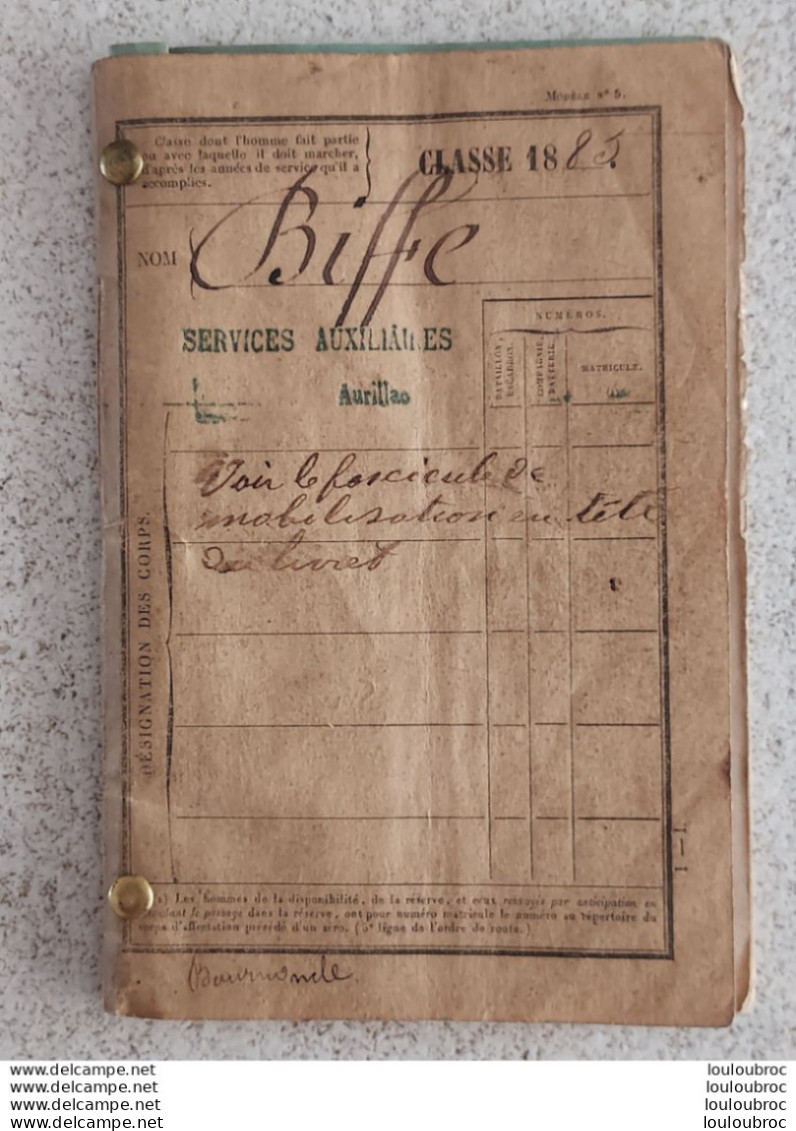 MODÈLE N° 5.
Classe dont l'homme fait partie
ou avec laquelle il doit marcher,
d'après les années de service qu'il a
accomplies.
CLASSE 1885.
NOM Biffe
SERVICES AUXILIAIRES
Aurillac
NUMÉROS.
BATAILLON,
ESCADRON.
COMPAGNIE,
BATTERIE.
MATRICULE.
Voir le fascicule de
mobilisation en tête
du livret
DÉSIGNATION DES CORPS.
1—1.
Les hommes de la disponibilité, de la réserve, et ceux renvoyés par anticipation en
attendant le passage dans la réserve, ont pour numéro matricule le numéro au répertoire du
corps d'affectation précédé d'un zéro. (5e ligne de l'ordre de route.)
www.delcampe.net
www.delcampe.net
www.delcampe.net
www.delcampe.net
louloubroc
louloubroc
louloubroc
louloubroc